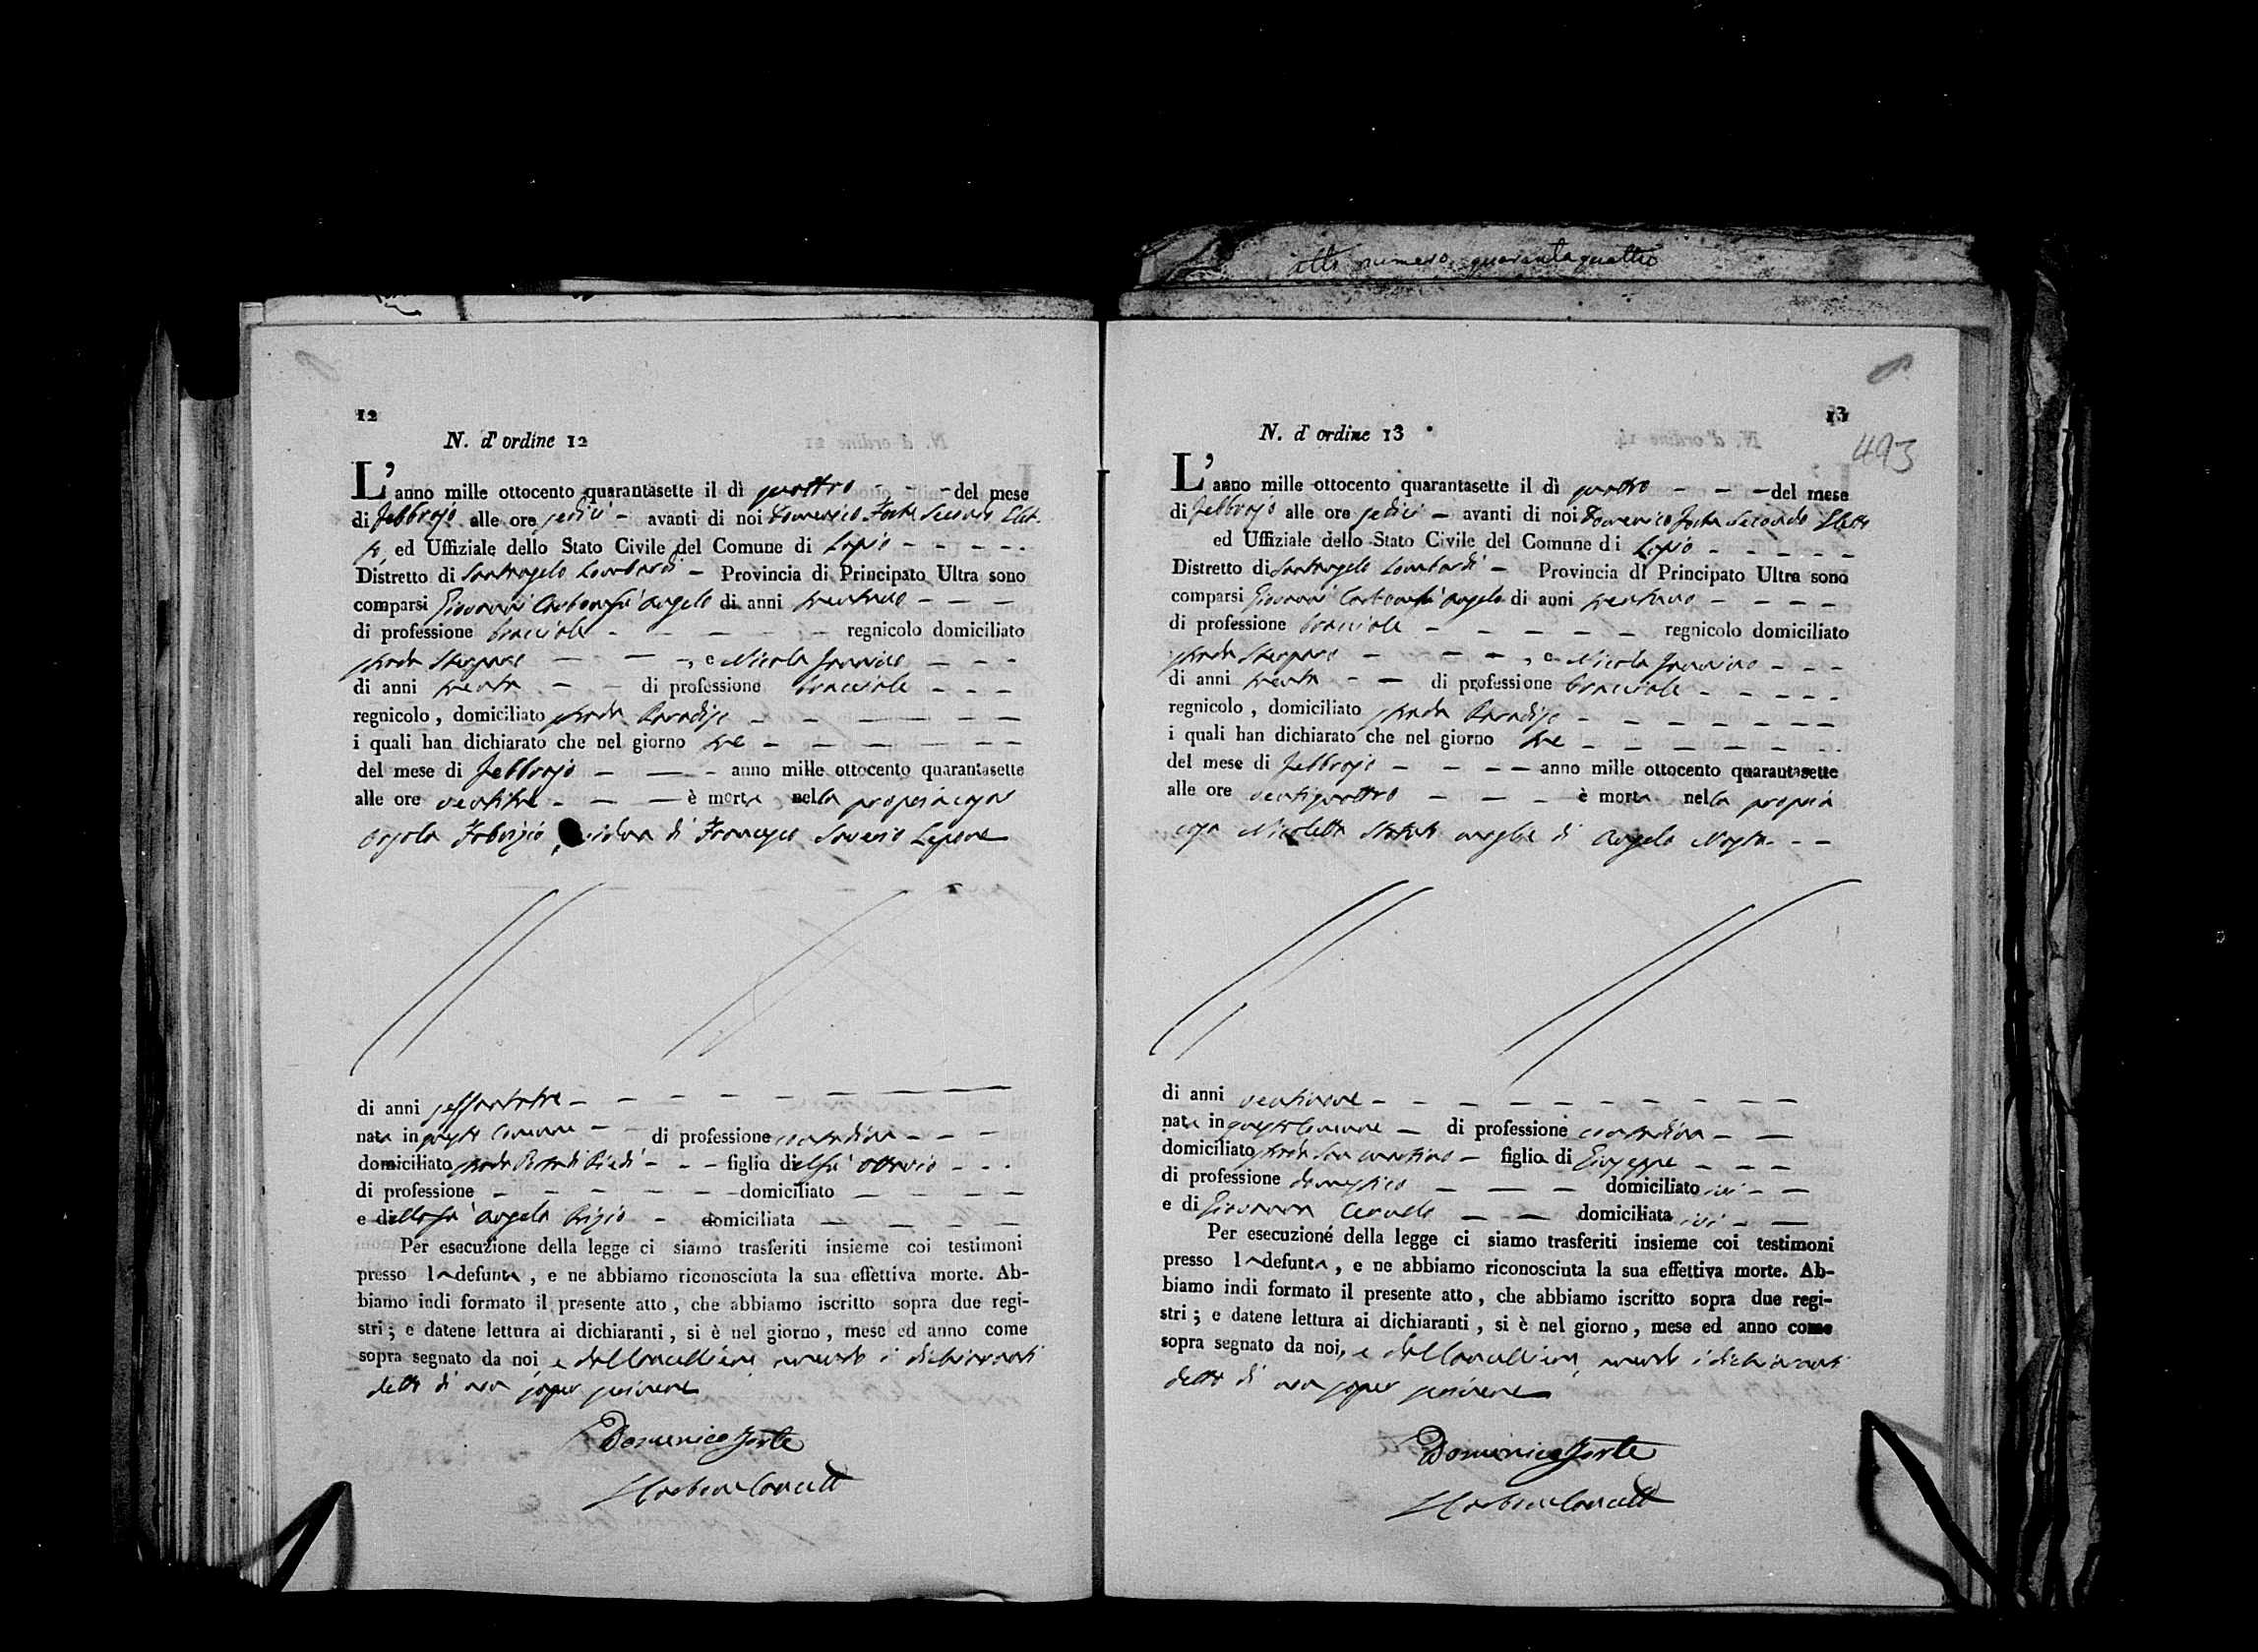 atto numero quarantaquattro
12
N. d' ordine 12
L' anno mille ottocento quarantasette il dì quattro - - - del mese
di Febbrajo alle ore sedici - avanti di noi Domenico Forte Secondo Elet-
to, ed Uffiziale dello Stato Civile del Comune di Lapio - - - - -
Distretto di Santangelo Lombardi - Provincia di Principato Ultra sono
comparsi Giovanni Carbone fu Angelo di anni trentuno - - -
di professione bracciale - - - - - regnicolo domiciliato
strada - - -, e Nicola - - -
di anni trenta - - di professione bracciale - - -
regnicolo, domiciliato strada Paradiso - - - - - -
i quali han dichiarato che nel giorno tre - - - - - -
del mese di Febbrajo - - - anno mille ottocento quarantasette
alle ore ventitre - - - è morta nella propria casa
Orsola Fabrizio, vidua di Francesco Saverio Lepore
di anni settantatre - - - - - - - -
nata in questo Comune - - di professione contadina - - -
domiciliata strada - - - figlia del fu Ottavio - - -
di professione - - - - - - domiciliato - - - -
e della fu Angela Rizio - domiciliata - - - -
Per esecuzione della legge ci siamo trasferiti insieme coi testimoni
presso la defunta, e ne abbiamo riconosciuta la sua effettiva morte. Ab-
biamo indi formato il presente atto, che abbiamo iscritto sopra due regi-
stri; e datene lettura ai dichiaranti, si è nel giorno, mese ed anno come
sopra segnato da noi, e dal Cancelliere, avendo i dichiaranti
detto di non saper scrivere
Domenico Forte
13
493
N. d' ordine 13
L' anno mille ottocento quarantasette il dì quattro - - - del mese
di Febbrajo alle ore sedici - avanti di noi Domenico Forte Secondo Eletto
ed Uffiziale dello Stato Civile del Comune di Lapio - - - - -
Distretto di Santangelo Lombardi - Provincia di Principato Ultra sono
comparsi Giovanni Carbone fu Angelo di anni trentuno - - - -
di professione bracciale - - - - - regnicolo domiciliato
strada - - - -, e Nicola - - -
di anni trenta - - di professione bracciale - - - - -
regnicolo, domiciliato strada Paradiso - - - - - - -
i quali han dichiarato che nel giorno tre - - - - - -
del mese di Febbrajo - - - - anno mille ottocento quarantasette
alle ore ventiquattro - - - è morta nella propria
casa Nicoletta moglie di Angelo - - -
di anni ventinove - - - - - - - - -
nata in questo Comune - di professione contadina - -
domiciliato strada San Martino - figlia di Giuseppe - - -
di professione domestico - - - domiciliato ivi - -
e di Giovanna - - domiciliata ivi - -
Per esecuzione della legge ci siamo trasferiti insieme coi testimoni
presso la defunta, e ne abbiamo riconosciuta la sua effettiva morte. Ab-
biamo indi formato il presente atto, che abbiamo iscritto sopra due regi-
stri; e datene lettura ai dichiaranti, si è nel giorno, mese ed anno come
sopra segnato da noi, e dal Cancelliere, avendo i dichiaranti
detto di non saper scrivere
Domenico Forte